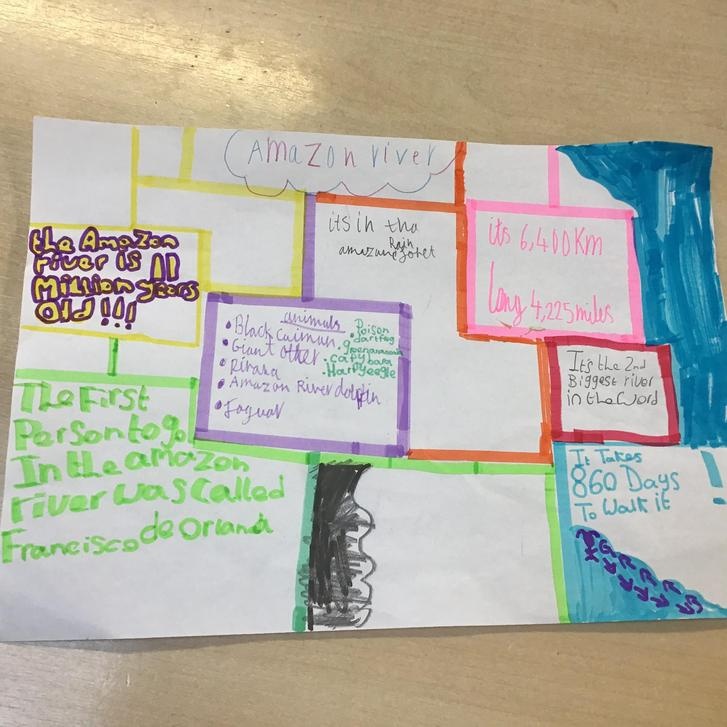 Amazon river
its in tha
Rain
amazane forset
its 6,400Km
long 4,225miles
the Amazon
river is 11
Million years
Old !!!
animals
• Black Caiman
• Giant Otter
• Piraha
• Amazon River dolphin
• Jaguar
• Poison
dart frog
• greenanaconda
• capy bara
• Harpyeagle
It's the 2nd
Biggest river
in the Word
The First
Person to go
In the amazon
river was called
Francisco de Orlana
It Takes
860 Days
To Walk it